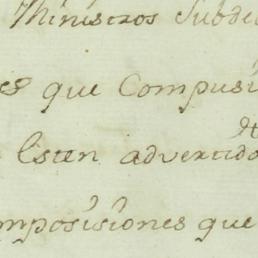 Ministros Subde
es que Compusi
Esten advertido
mposisiones que